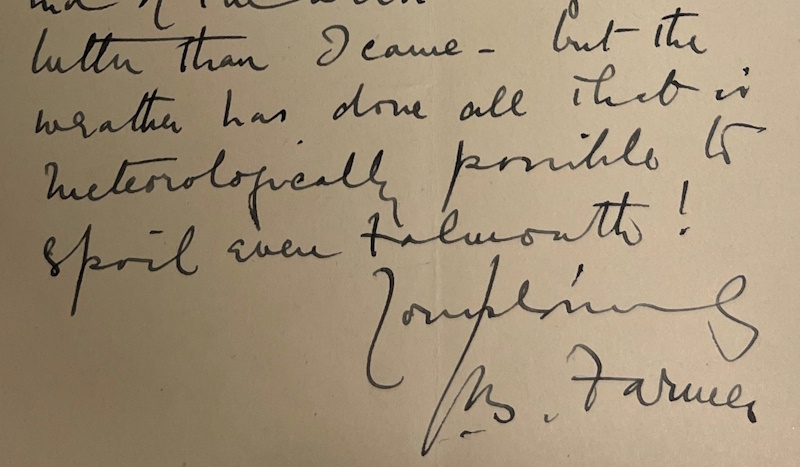 end of the week
better than I came - but the
weather has done all that is
meteorologically possible to
spoil even Falmouth!
Complainingly
B. Farmer